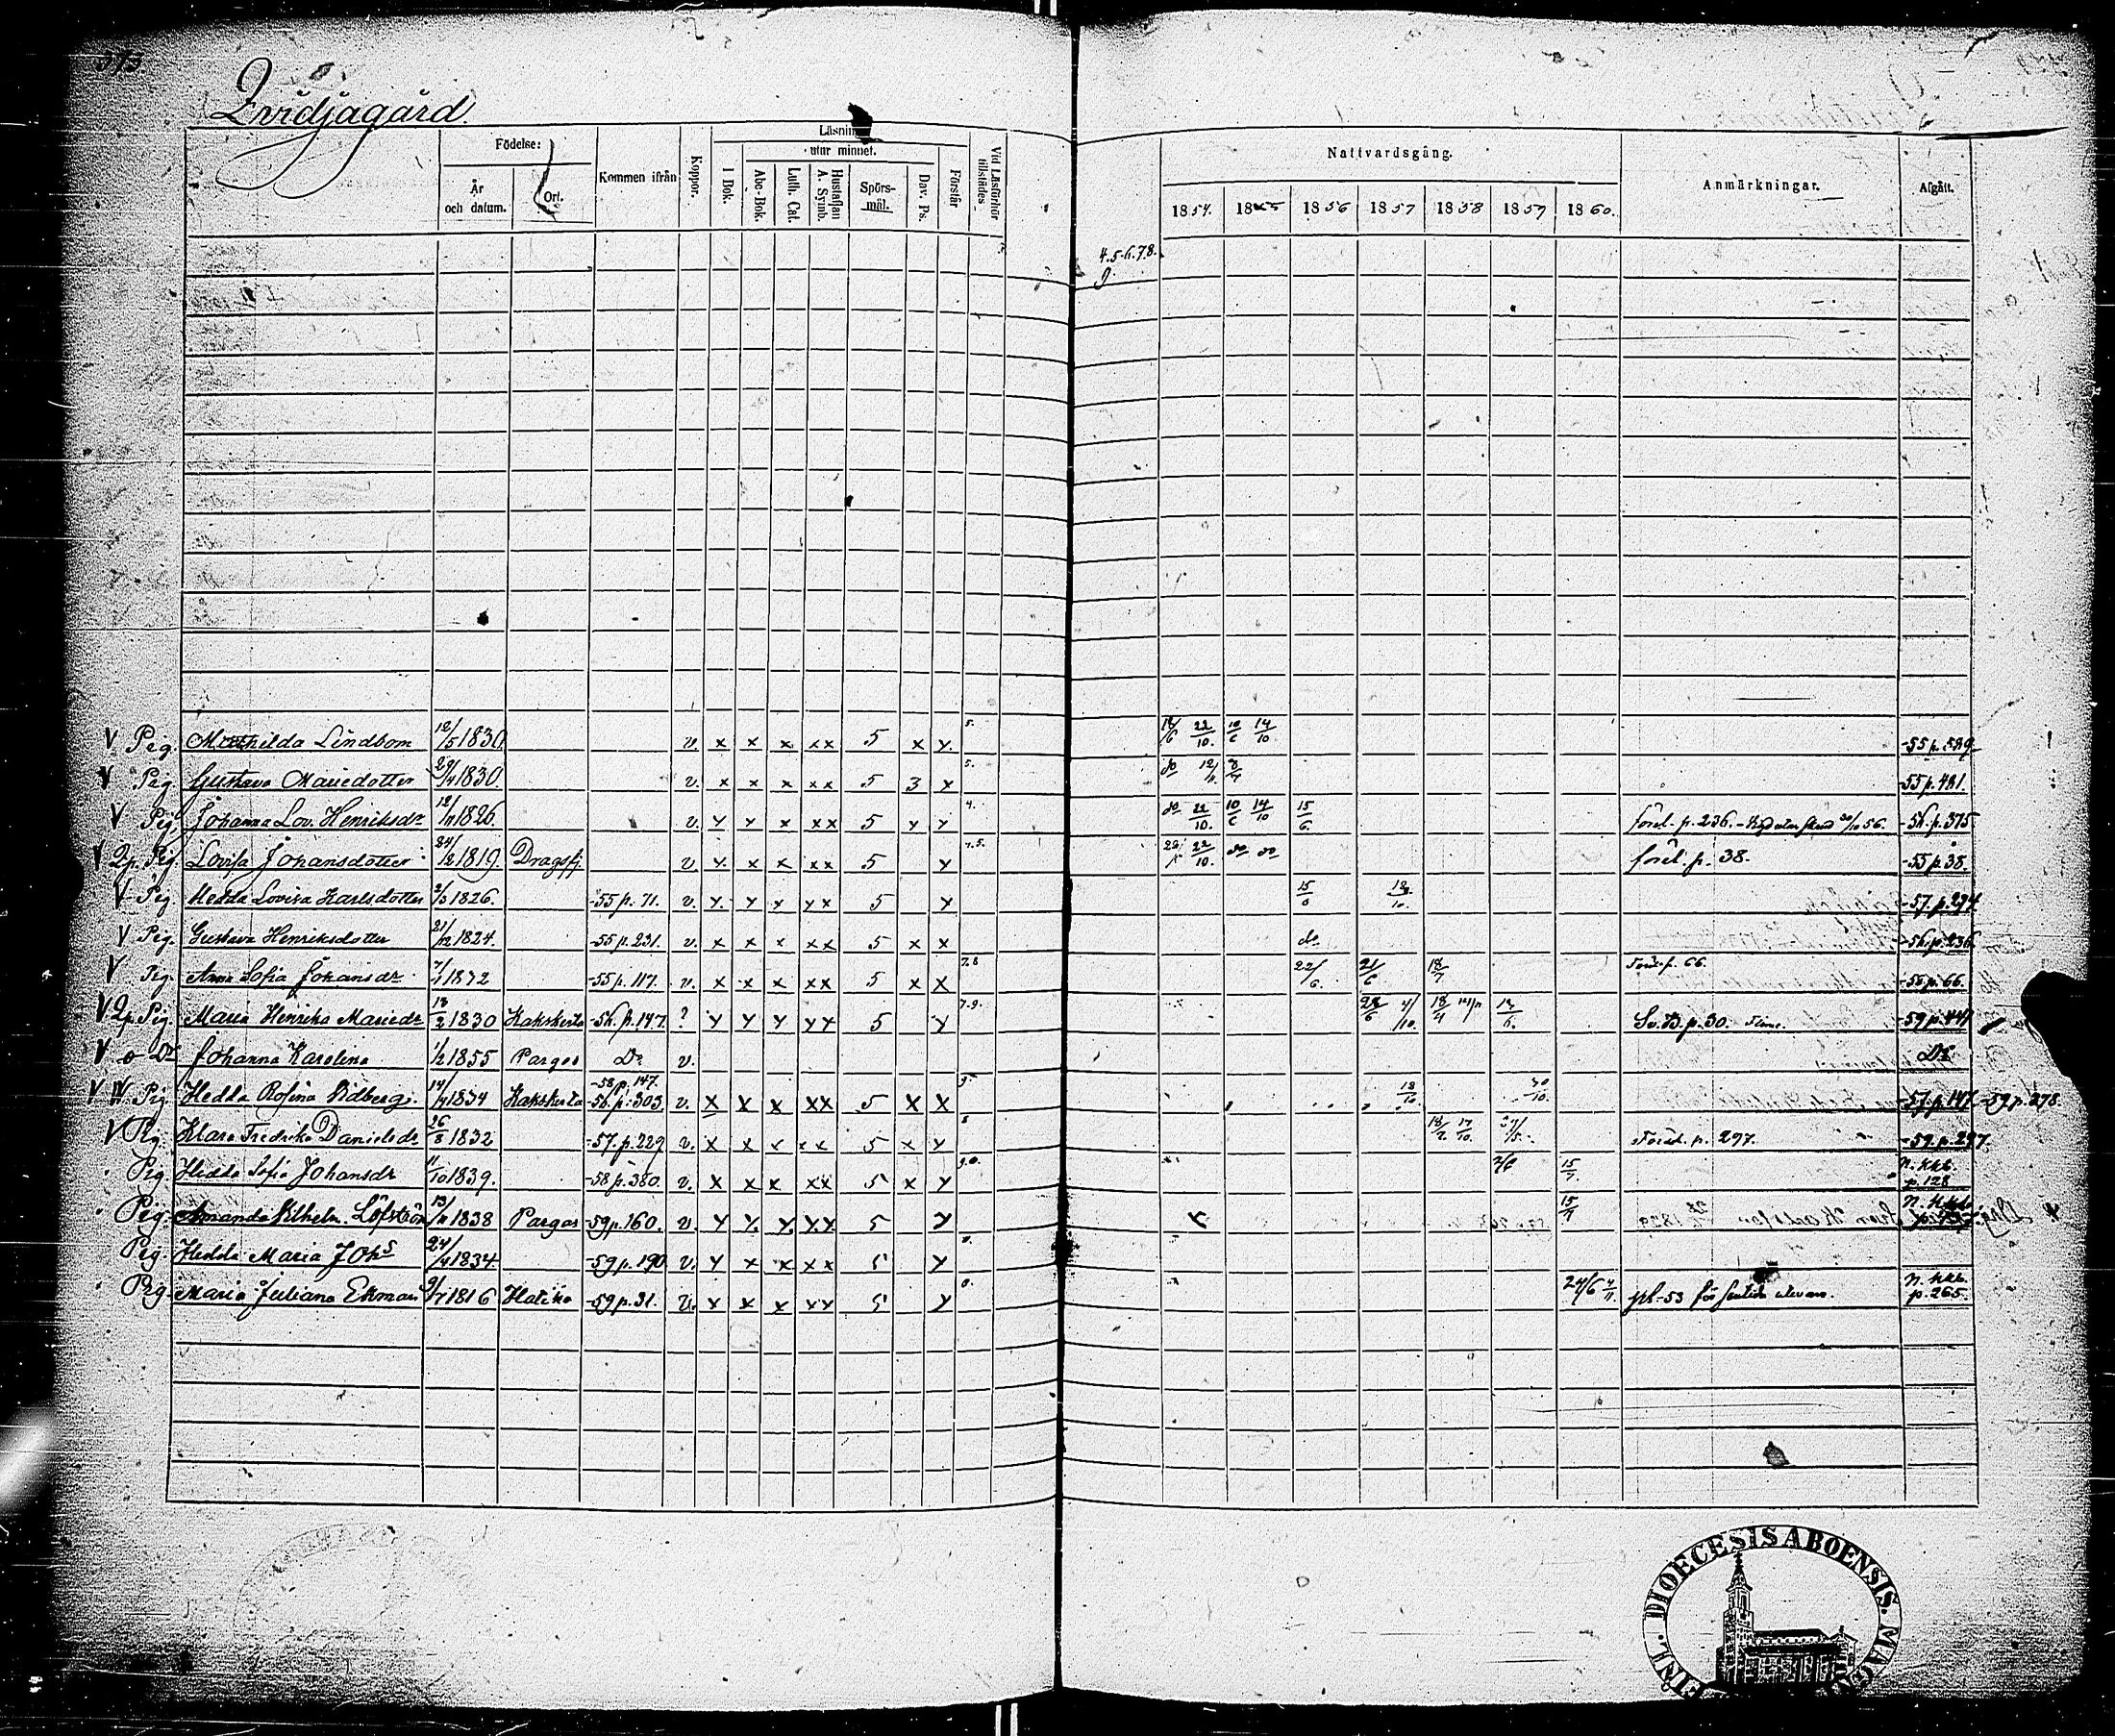 373.
Qvidjagård.
Födelse:
År och datum.
Ort.
Kommen ifrån
Koppor.
Läsning
utur minnet.
I Bok.
Abc-Bok.
Luth. Cat.
Hustaflan A. Symb.
Spörs-mål.
Dav. Ps.
Förstår
Vid Läsförhör tillstädes
Nattvardsgång.
1854. 1855 1856 1857 1858 1859 1860.
Anmärkningar.
Afgått.
4.5.6.7.8.
V Pig. Mathilda Lindbom 12/5 1830. v. x x x xx 5 x x. 5. 22/10. 10/6 14/10 -55 p. 589
V Pig Gustava Mariedotter 29/4 1830. v. x x x xx 5 3 x 5. do -55 p. 481.
V Pig, Johanna Lov. Henriksdr 12/11 1826. v. x x x xx 5 x x 4. do 22/10. 10/6 14/10 15/6. föräl. p. 236. -56. p. 375
V Qp. Pig Lovisa Johansdotter 24/12 1819. Dragsfj v. x. x x xx 5 x 22/10. do do föräl. p. 38. -55 p. 38.
V Pig Hedda Lovisa Karlsdotter 2/3 1826. -55 p. 71. v. x. x x xx 5 x 15/6 12/10. -57. p. 294
V Pig. Gustava Henriksdotter 21/12 1824. -55 p. 231. v. x x x xx 5 x x do -56. p. 236.
V Pig. Anna Sofia Johansdr 1832 -55 p. 117. v. x x x xx 5 x x 7.8 22/6. 21/6 18/7 Föräl. p. 66. -58 p. 66.
V Qp. Pig. Maria Henrika Mariedr 13/2 1830 Kakskerta -56. p. 147. ? x x x xx 5 x 7.9. Sv. B. p. 30. -59 p. 441
V o Dr Johanna Karolina 1/2 1855 Pargas Do v. Do
V W. Pig Hedda Rosina Lidberg. 14/4 1834 Kakskerta -58 p. 147. -56. p. 303. v. x x x xx 5 x x 9. 18/10 30/10. -57. p. 147 -59 p. 278
V Pig. Klara Fredrika Danielsdr 26/8 1832 -57. p. 229 v. x x x xx 5 x x 8 Föräl. p. 297. -59. p. 297.
Pig. Hedda Sofia Johansdr 11/10 1839. -58 p. 380. v. x x x xx 5 x x 9.0. 2/6 15/7. N. kkb. p. 128
Pig. Amanda Vilhelm. Löfström 13/11 1838 Pargas -59 p. 160. v. x x. x xx 5 x 15/7 N. Kkb.
Pig Hedda Maria Johs 24/4 1834 -59 p. 190 v. x x x xx 5 x 0.
Pig Maria Juliana Ekman 9/7 1816 Halikko -59 p. 31. v. x x x xx 5 x 0. 24/6 4/11. N. kkb. p. 265.
DIOECESIS ABOENSIS. MAG
FINL.